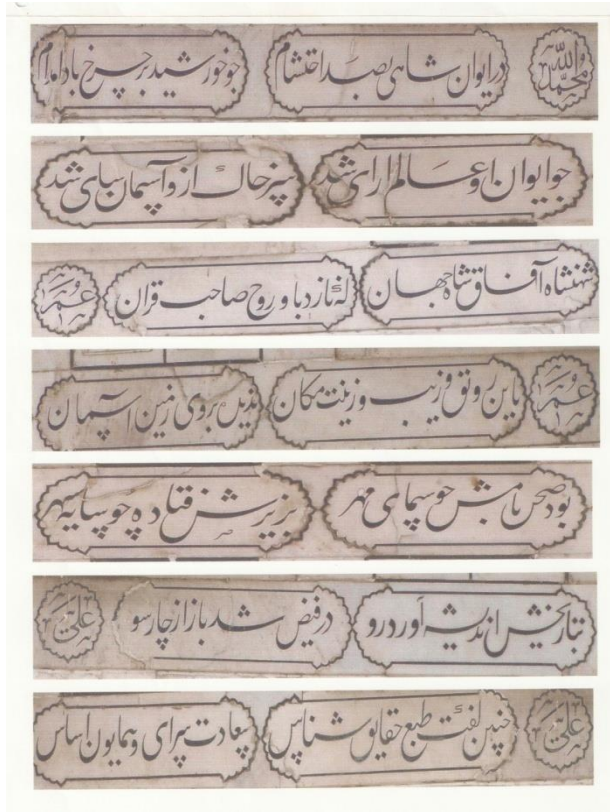 الله محمد در ایوان شاهی بصد احتشام چو خورشید بر چرخ بادا مدام
چو ایوان او عالم آرای شد سر خاک ازو آسمان سای شد
شهنشاه آفاق شاه جهان که نازد باو روح صاحب قران عمر
عمر باین رونق و زیب و زینت مکان ندیده بروی زمین آسمان
بود صحن بامش چو سیمای مهر بزیرش فتاده چو سایه سپهر
بتاریخش اندیشه آورد رو در فیض شد باز از چارسو علی
علی چنین گفت طبع حقایق شناس سعادت سرای و همایون اساس